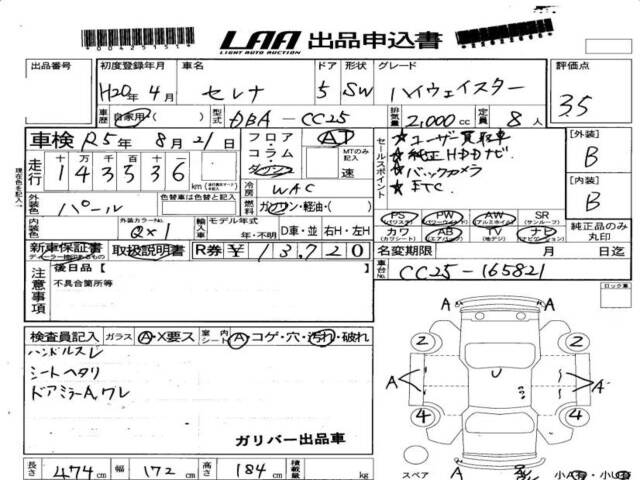 LAA 出品申込書
LIGHT AUTO AUCTION
出品番号
初度登録年月 車名 ドア 形状 グレード 評価点
H20年4月 セレナ 5 SW ハイウェイスター 3.5
車歴 自家用・( ) 型式 DBA-CC25 排気量 2,000cc 定員 8人
車検 R5年8月21日
フロア・コラム・ AT
MTのみ記入 速
セールスポイント
★ユーザー買取車
★純正HDDナビ
★バックカメラ
★ETC
[外装] B
[内装] B
現在色を記入
走行 十万千百十一
143336 km
冷房 WAC
外装色 パール 色替車は色替と記入
燃料 ガソリン・軽油・( )
内装色 外装カラーNo. QX1
輸入車 モデル年式 年・不明 D車・並 右H・左H
PS (パワステ) PW (パワーウィンド) AW (アルミホイル) SR (サンルーフ)
カワ (カワシート) AB (エアバック) TV (地デジ) ナビ
純正品のみ丸印
新車保証書 取扱説明書 R券 ¥13,720
名変期限 月 日迄
車台No. CC25-165821
注意事項
後日品【 】
不具合箇所等
ロック車
検査員記入 ガラス A・X要ス 室内 シート A・コゲ・穴・汚れ・破れ
ハンドルスレ
シートヘタリ
ドアミラーA,ワレ
ガリバー出品車
長さ 474cm 幅 172cm 高さ 184cm 積載量 kg
A A
2 2
A U A
4 4
スペア A A